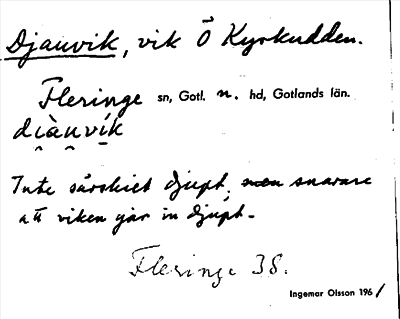 Djauvik, vik Ö Kyrkudden.
Fleringe sn, Gotl. n. hd, Gotlands län.
di̯àu̯vík
Inte särskilt djupt, men snarare
att viken går in djupt.
Fleringe 38.
Ingemar Olsson 1961